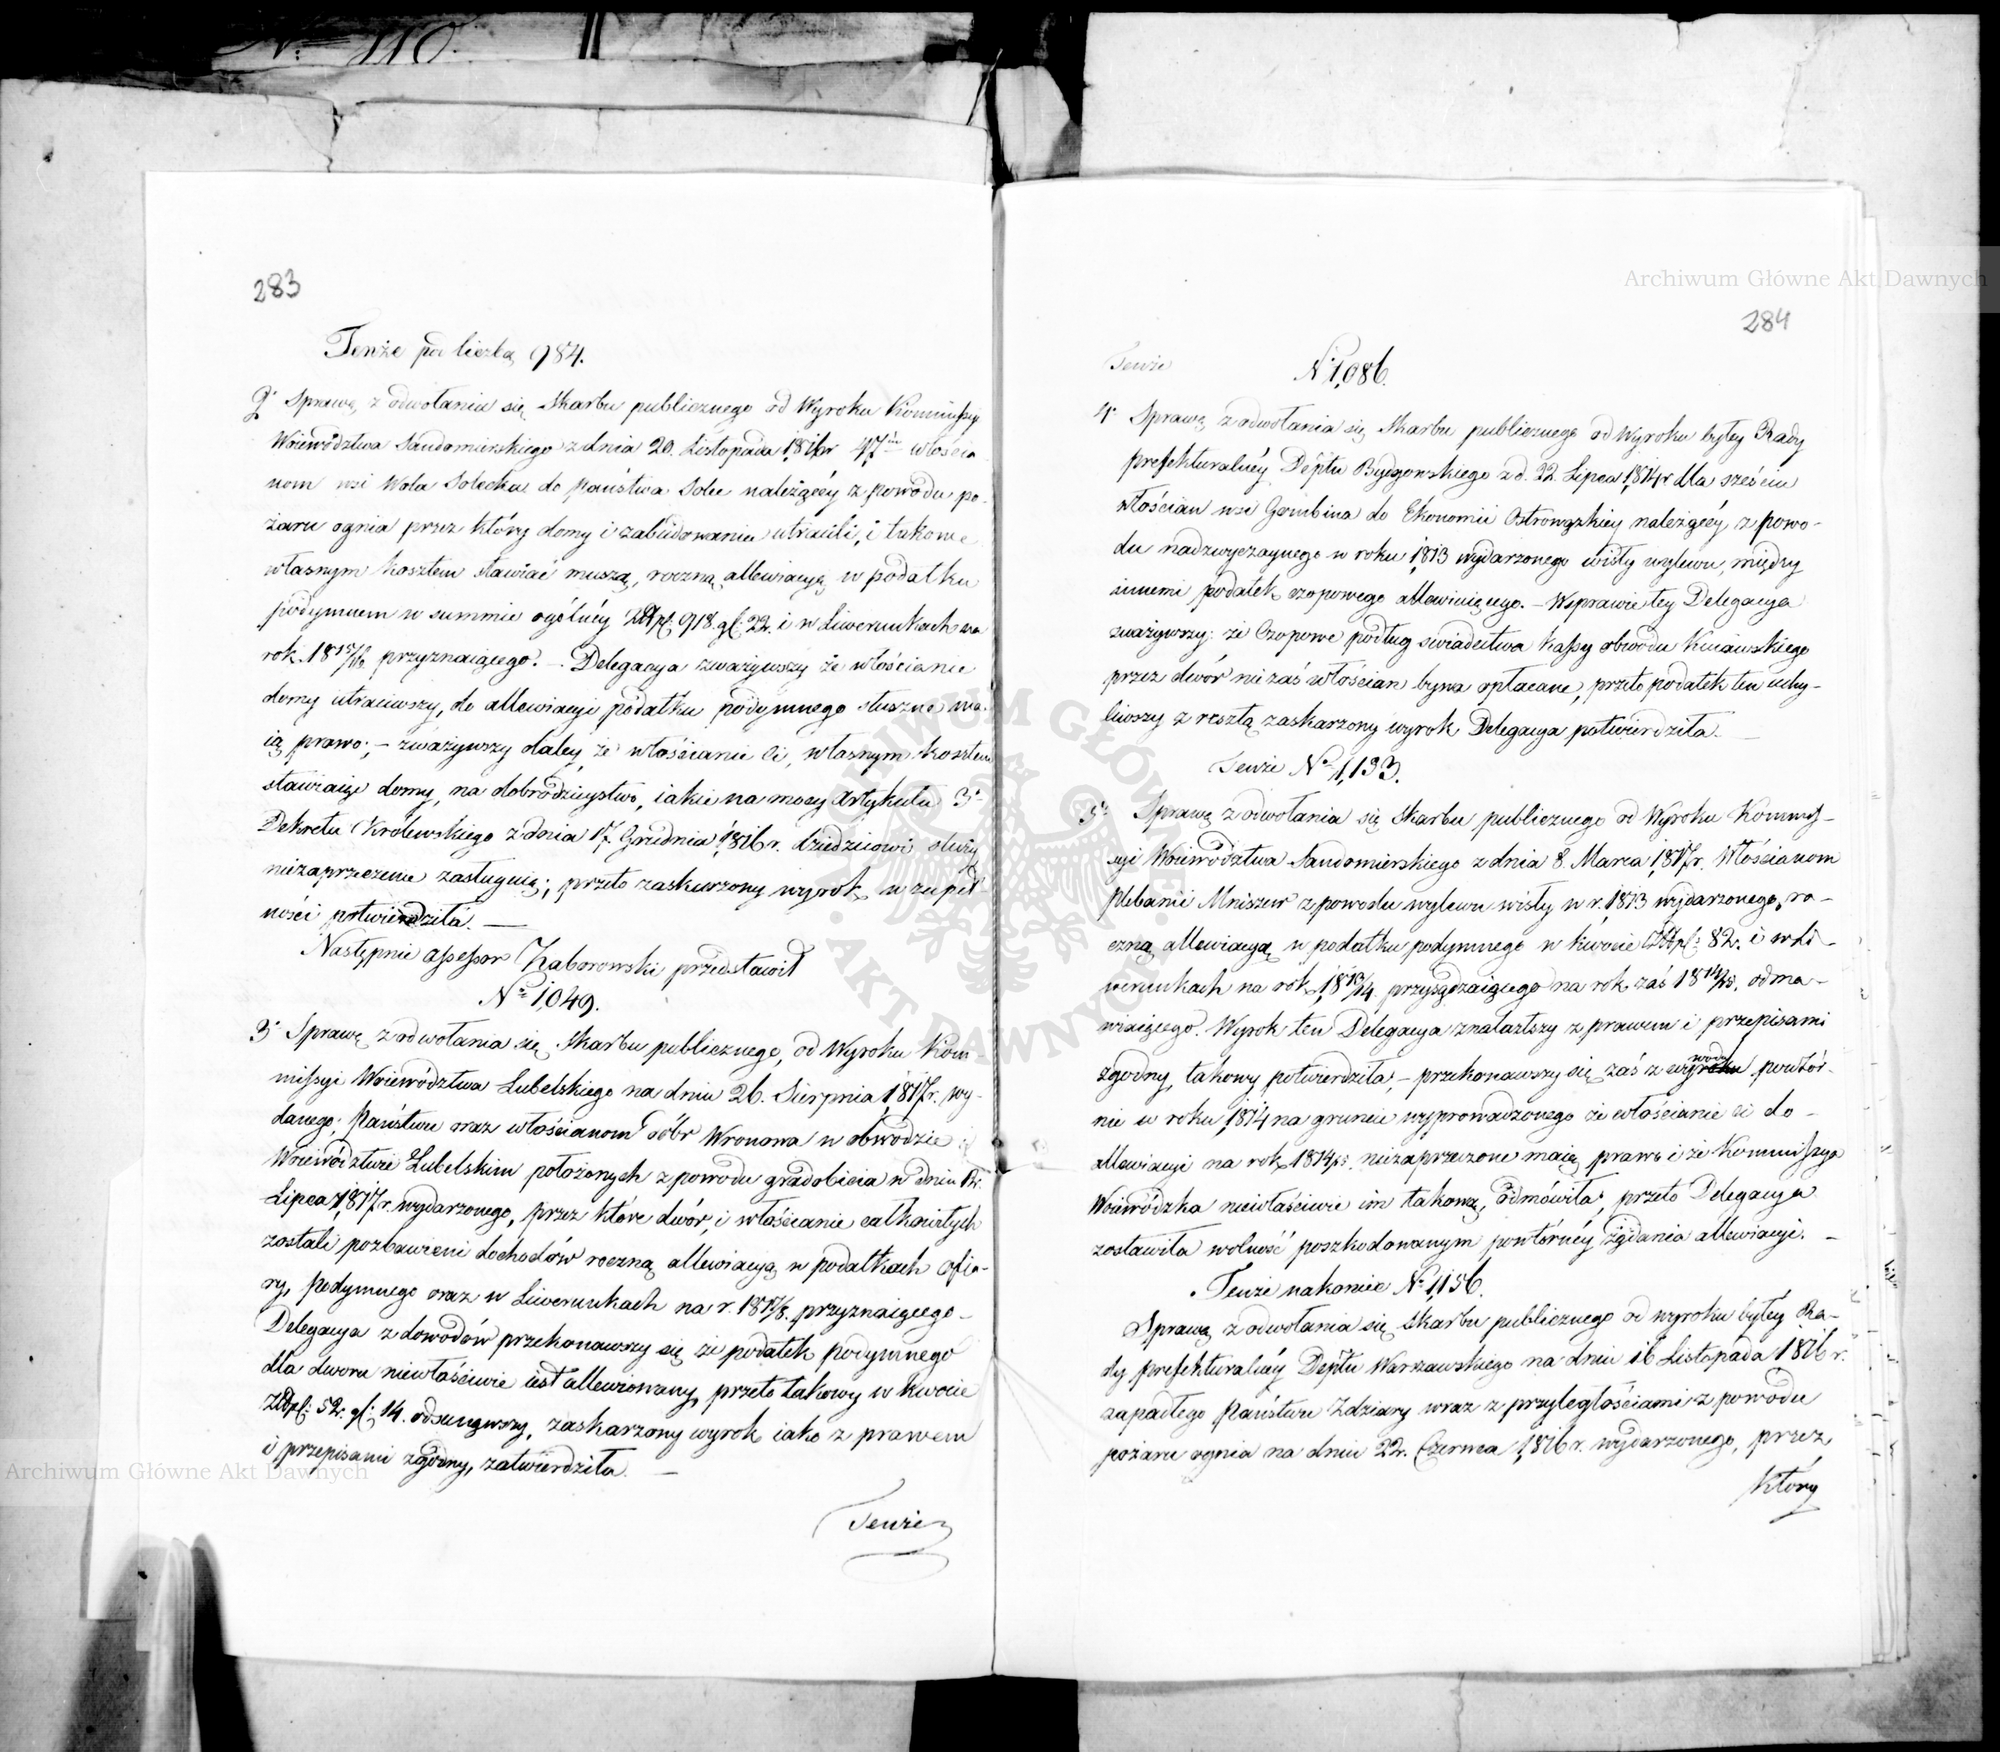 Nº 110.
283
Tenże pod liczbą 984.
2º Sprawę z odwołania się Skarbu publicznego od Wyroku Kommissyi
Woiewództwa Sandomierskiego z dnia 20. Listopada 1816r 47iu włościa
nom wsi Wola Solecka do Państwa Solec należącey z powodu po-
żaru ognia przez który domy i zabudowania utracili, i takowe
własnym kosztem stawiać muszą, roczną allewiacyą w podatku
podymnem w summie ogólney Złłpł: 918. gł: 22. i w Liwerunkach na
rok 1815/16 przyznaiącego. – Delegacya zważywszy że włościanie
domy utraciwszy, do allewiacyi podatku podymnego słuszne ma-
ią prawo; – zważywszy daley, że włościanie ci, własnym kosztem
stawiaiąc domy, na dobrodzieystwo, iakie na mocy Artykułu 3º
Dekretu Królewskiego z dnia 17. Grudnia 1816 r. dziedzicowi służy
niezaprzeczenie zasługuią; przeto zaskarzony wyrok w zupeł-
ności potwierdziła. —
Następnie assessor Zaborowski przedstawił
Nº 1,049.
3º Sprawę z odwołania się Skarbu publicznego, od Wyroku Kom-
missyi Woiewództwa Lubelskiego na dniu 26. Sierpnia 1,817r. wy-
danego; Państwu oraz włościanom dóbr Wronowa w obwodzie i
Woiewództwie Lubelskim położonych z powodu gradobicia w dniu 12.
Lipca 1,817 r. wydarzonego, przez które dwór, i włościanie całkowitych
zostali pozbawieni dochodów roczną allewiacyą w podatkach ofia-
ry, podymnego oraz w Liwerunkach na r. 1817/8. przyznaiącego –
Delegacya z dowodów przekonawszy się że podatek podymnego
dla dworu niewłaściwie iest allewiowany, przeto takowy w kwocie
Złłpł: 52. gł: 14. odsunąwszy, zaskarzony wyrok iako z prawem
i przepisami zgodny, zatwierdziła. —
Tenże
284
Tenże Nº 1,086.
4º Sprawę z odwołania się Skarbu publicznego od Wyroku byłey Rady
prefekturalnéy Deptu Bydgowskiego z d. 22. Lipca 1,814r dla sześciu
włościan wsi Gąmbina do Ekonomii Ostrowązkiey należącéy z powo-
du nadzwyczaynego w roku 1,813 wydarzonego wisły wylewu, między
innemi podatek czopowego allewiuiącego. – W sprawie tey Delegacya
zważywszy: że Czopowe podług swiadectwa Kassy obwodu Kuiawskiego
przez dwór nie zaś włościan bywa opłacane, przeto podatek ten uchy-
liwszy z resztą zaskarzony wyrok Delegacya potwierdziła. —
Tenże Nº 1,133.
5º Sprawę z odwołania się Skarbu publicznego od Wyroku Kommis-
syi Woiewództwa Sandomierskiego z dnia 8. Marca 1,817r. Włościanom
plebanii Mniszew z powodu wylewu wisły w r. 1,813 wydarzonego, ro-
czną allewiacyą w podatku podymnego w kwocie Złłpł: 82. i w Li-
werunkach na rok 1,813/14. przysądzaiącego na rok zaś 1814/15. odma-
wiaiącego. Wyrok ten Delegacya znalazłszy z prawem i przepisami
zgodny, takowy potwierdziła; – przekonawszy się zaś z wyroku powtór-
nie w roku 1,814 na gruncie wyprowadzonego że włościanie ci do –
allewiacyi na rok 1814/15. niezaprzeczone maią prawo i że Kommissya
Woiewódzka niewłaściwie im takową odmówiła; przeto Delegacya
zostawiła wolność poszkodowanym powtórnéy żądania allewiacyi. –
Tenże nakoniec Nº 1,156.
Sprawę z odwołania się Skarbu publicznego od wyroku byłey Ra-
dy prefekturalnéy Deptu Warszawskiego na dniu 16 Listopada 1816 r.
zapadłego Państwu Zdziary wraz z przyległościami z powodu
pożaru ognia na dniu 22. Czerwca 1,816 r. wydarzonego, przez
Który
Archiwum Główne Akt Dawnych
Archiwum Główne Akt Dawnych
ARCHIWUM GŁÓWNE AKT DAWNYCH